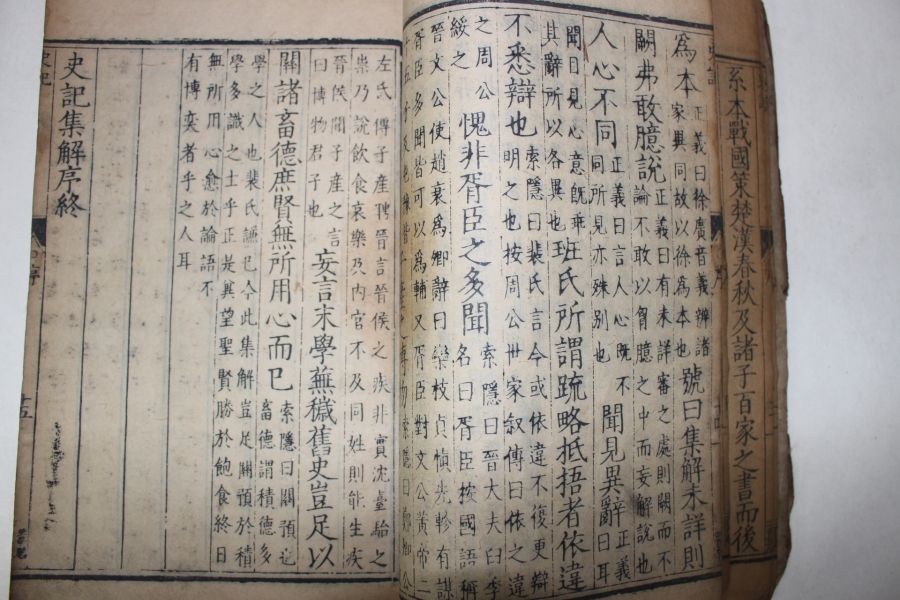 系本戰國策楚漢春秋及諸子百家之書而後
為本正義曰徐廣音義辨諸家異同故以徐為本也號曰集解未詳則
闕弗敢臆說正義曰有未詳審之處則闕而不論不敢以胷臆之中而妄解說也
人心不同正義曰言人心既不同所見亦殊別也聞見異辭正義曰耳
聞目見心意既乖其辭所以各異也班氏所謂疏略抵捂者依違
不悉辯也索隱曰裴氏言今或依違不復更辯明之也按周公世家叙傳曰依之違
之周公綏之愧非胥臣之多聞索隱曰晉大夫臼季名曰胥臣按國語稱
晉文公使趙衰為卿辭曰欒枝貞慎先軫有謀胥臣多聞皆可以為輔又胥臣對文公黃帝二
十五子及
左氏傳子產聘晉言晉侯之疾非實沈臺駘之祟乃說飲食哀樂及內官不及同姓則能生疾
晉侯聞子產之言曰博物君子也妄言末學蕪穢舊史豈足以
關諸畜德庶賢無所用心而已索隱曰關預也畜德謂積德多
學之人也裴氏謙已今此集解豈足關預於積學多識之士乎正是冀望聖賢勝於飽食終日
無所用心愈於論語不有博奕者乎之人耳
史記集解序終